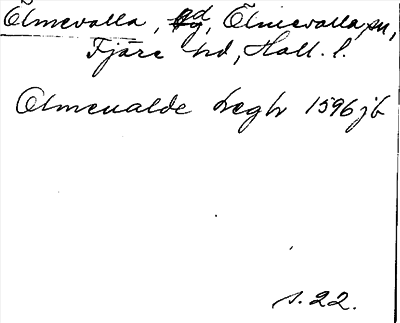 Ölmevalla, gd, Ölmevalla sn,
Fjäre hd, Hall. l.
Olmeualde heghr 1596 jb
s. 22.